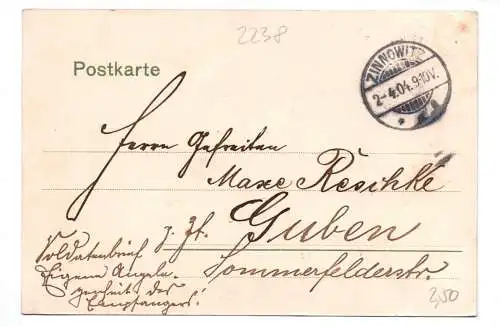 2238
Postkarte
ZINNOWITZ
2-4.04.9-10V.
Herrn Gefreiten
Maxe Reschke
z. Zt. Guben
Sommerfelderstr.
Soldatenbrief
Eigene Angele-
genheit des
Empfängers!
2,50